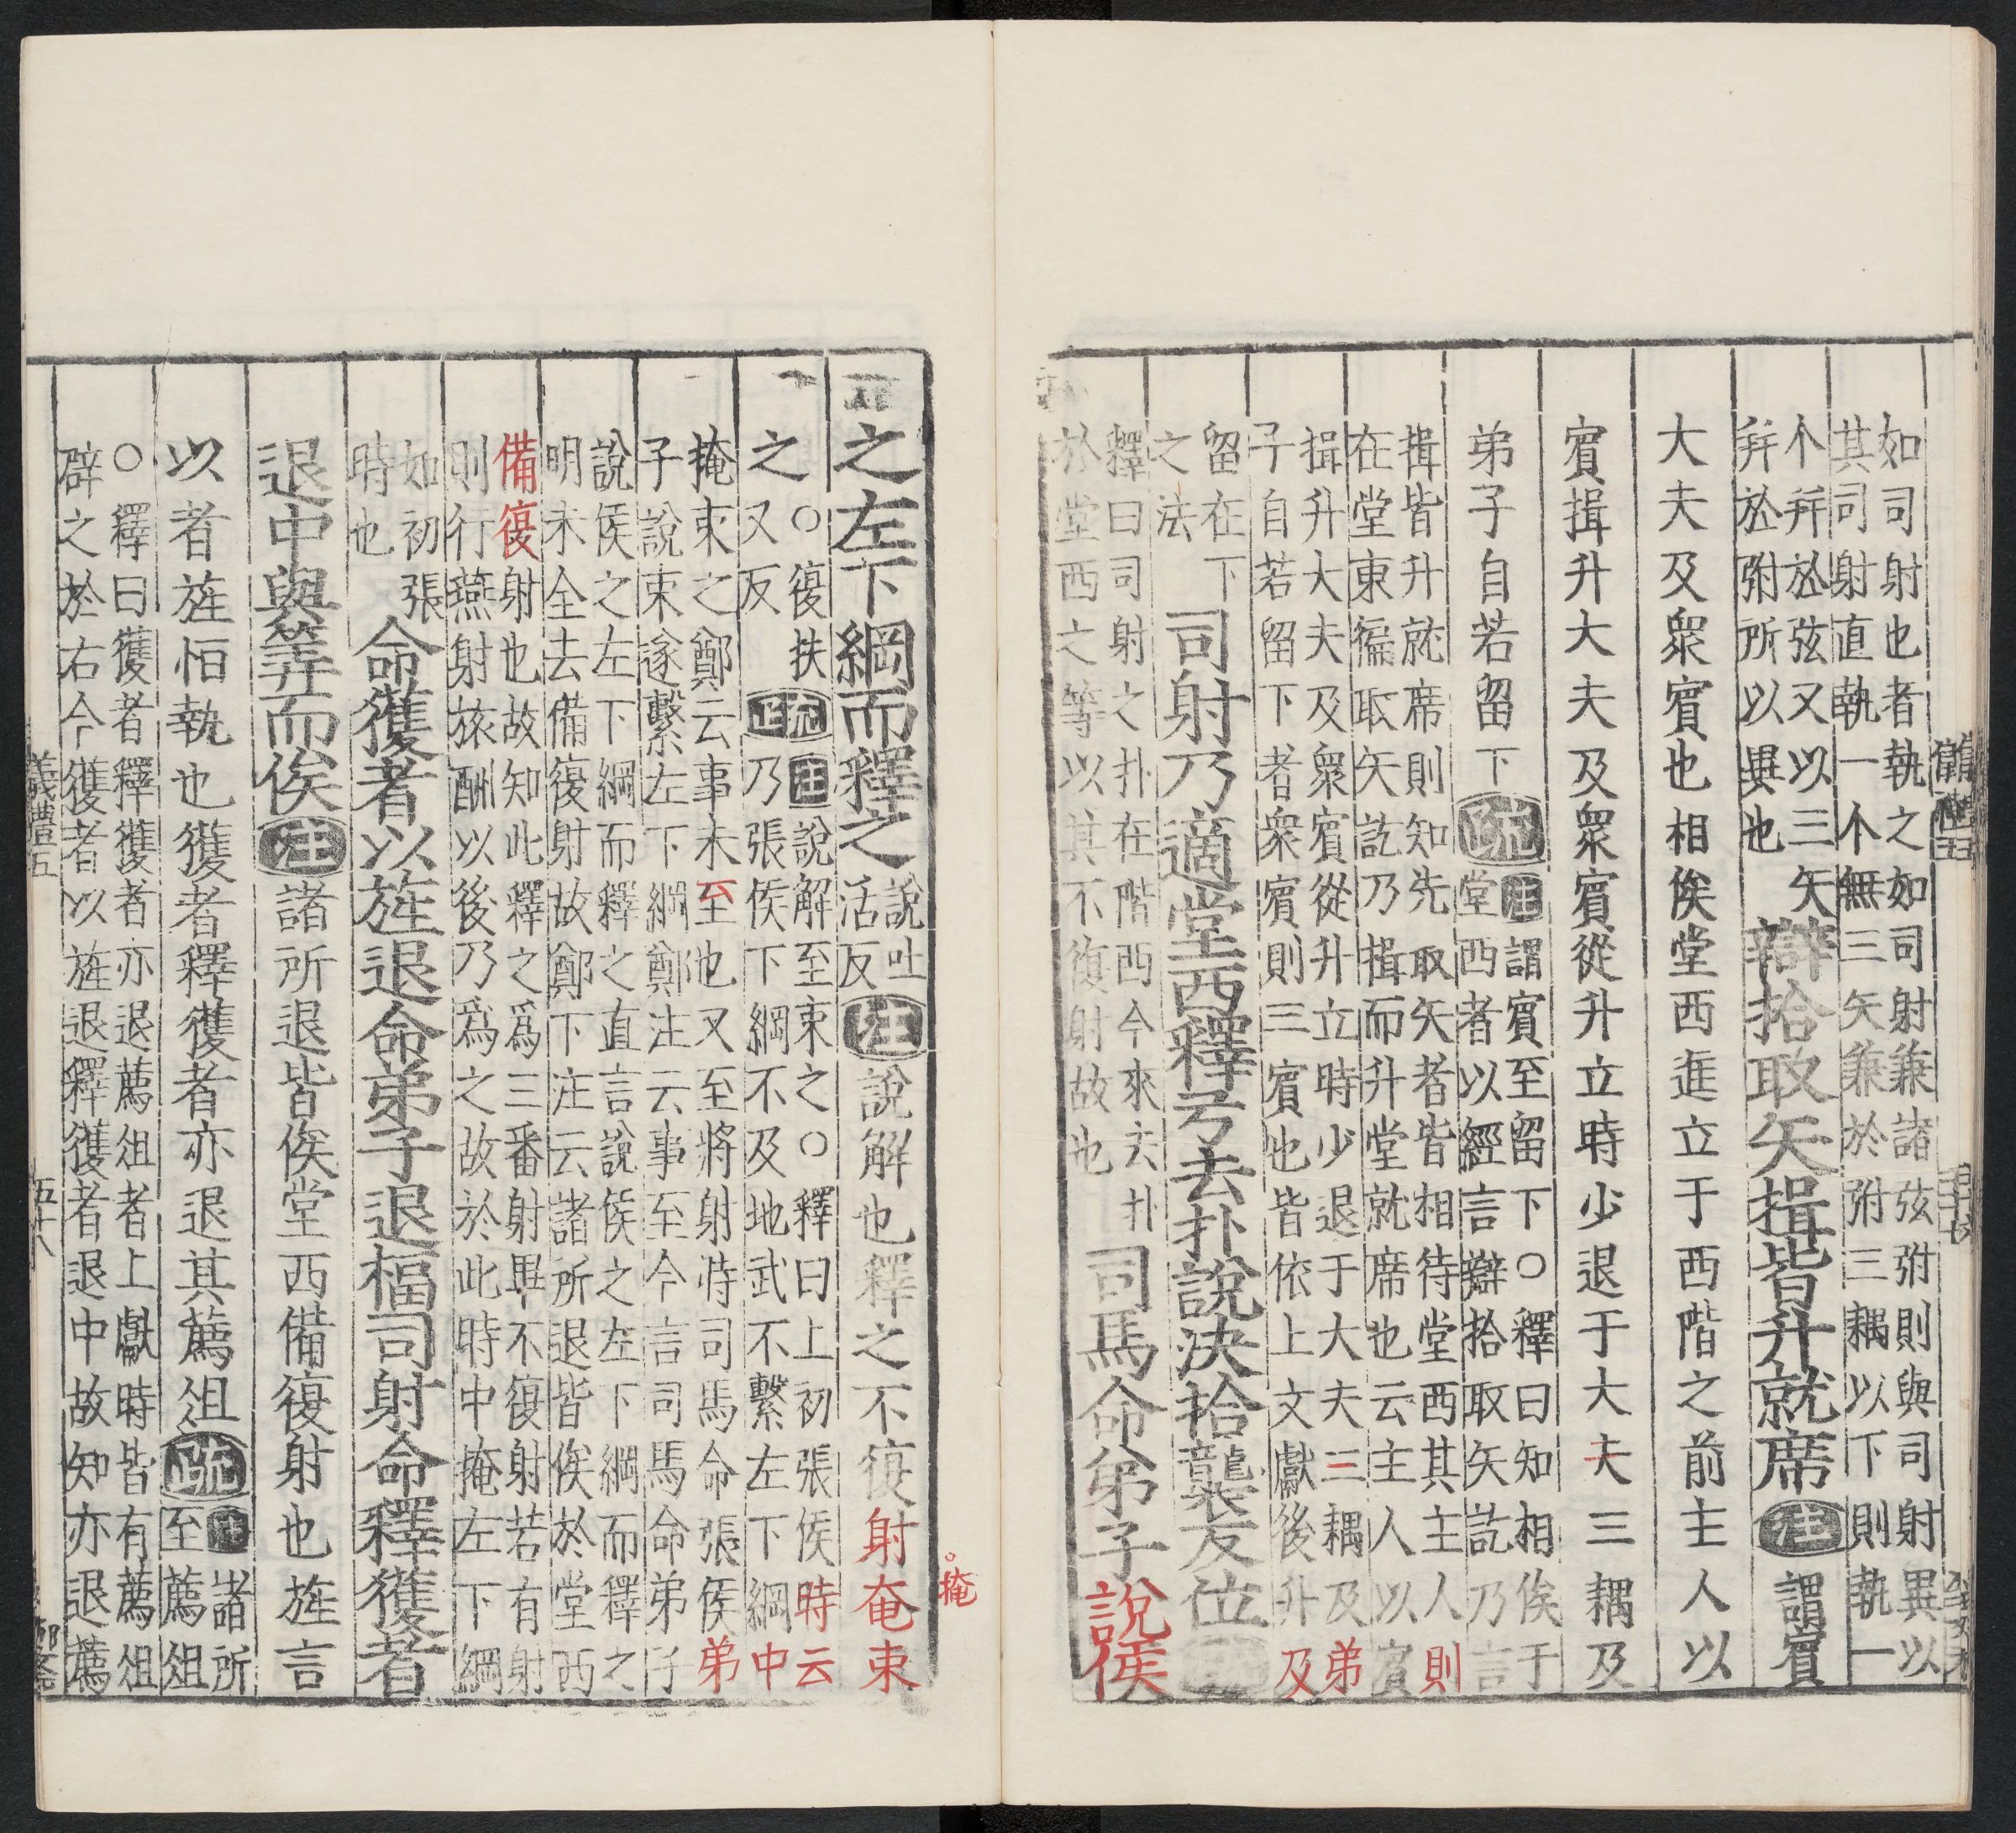 如司射也者執之如司射兼諸弦弣則與司射異以
其司射直執一个無三矢兼於弣三耦以下則執一
个并於弦又以三矢
并於弣所以異也
辯拾取矢揖皆升就席注謂賓
大夫及眾賓也相俟堂西進立于西階之前主人以
賓揖升大夫及眾賓從升立時少退于大夫三耦及
弟子自若留下疏注謂賓至留下○釋曰知相俟于
堂西者以經言辯拾取矢訖乃言
揖皆升就席則知先取矢者皆相待堂西其主人則
在堂東徧取矢訖乃揖而升堂就席也云主人以賓
揖升大夫及眾賓從升立時少退于大夫三耦及弟
子自若留下者眾賓則三賓也皆依上文獻後升及
留在下
之法
司射乃適堂西釋弓去扑說決拾襲反位
釋曰司射之扑在階西今來去扑
於堂西之等以其不復射故也
司馬命弟子說侯
之左下綱而釋之說吐
活反
注說解也釋之不復射奄束
掩
之○復扶
又反
疏注說解至束之○釋曰上初張侯時云
乃張侯下綱不及地武不繫左下綱中
掩束之鄭云事未至也又至將射時司馬命張侯弟
子說束遂繫左下綱鄭注云事至今言司馬命弟子
說侯之左下綱而釋之直言說侯之左下綱而釋之
明未全去備復射故鄭下注云諸所退皆俟於堂西
備復射也故知此釋之為三番射畢不復射若有射
則行燕射旅酬以後乃為之故於此時中掩左下綱
如初張
時也
命獲者以旌退命弟子退楅司射命釋獲者
退中與筭而俟注諸所退皆俟堂西備復射也旌言
以者旌恒執也獲者釋獲者亦退其薦俎疏注諸所
至薦俎
○釋曰獲者釋獲者亦退薦俎者上獻時皆有薦俎
辟之於右今獲者以旌退釋獲者退中故知亦退薦
義禮五
五十八